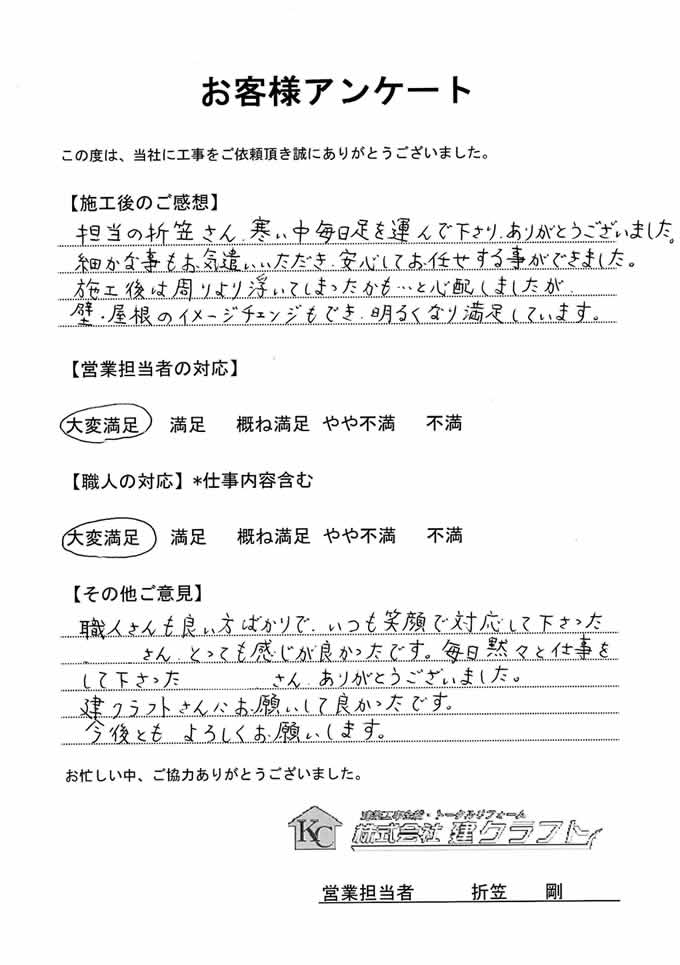 お客様アンケート
この度は、当社に工事をご依頼頂き誠にありがとうございました。
【施工後のご感想】
担当の折笠さん、寒い中毎日足を運んで下さり、ありがとうございました。
細かな事もお気遣いいただき、安心してお任せする事ができました。
施工後は周りより浮いてしまったかも…と心配しましたが、
壁・屋根のイメージチェンジもでき、明るくなり満足しています。
【営業担当者の対応】
大変満足 満足 概ね満足 やや不満 不満
【職人の対応】*仕事内容含む
大変満足 満足 概ね満足 やや不満 不満
【その他ご意見】
職人さんも良い方ばかりで、いつも笑顔で対応して下さった
さん、とっても感じが良かったです。毎日黙々と仕事を
して下さった さん、ありがとうございました。
建クラフトさんにお願いして良かったです。
今後とも よろしくお願いします。
お忙しい中、ご協力ありがとうございました。
KC
・トータルリフォーム
株式会社 建クラフト
営業担当者 折笠 剛